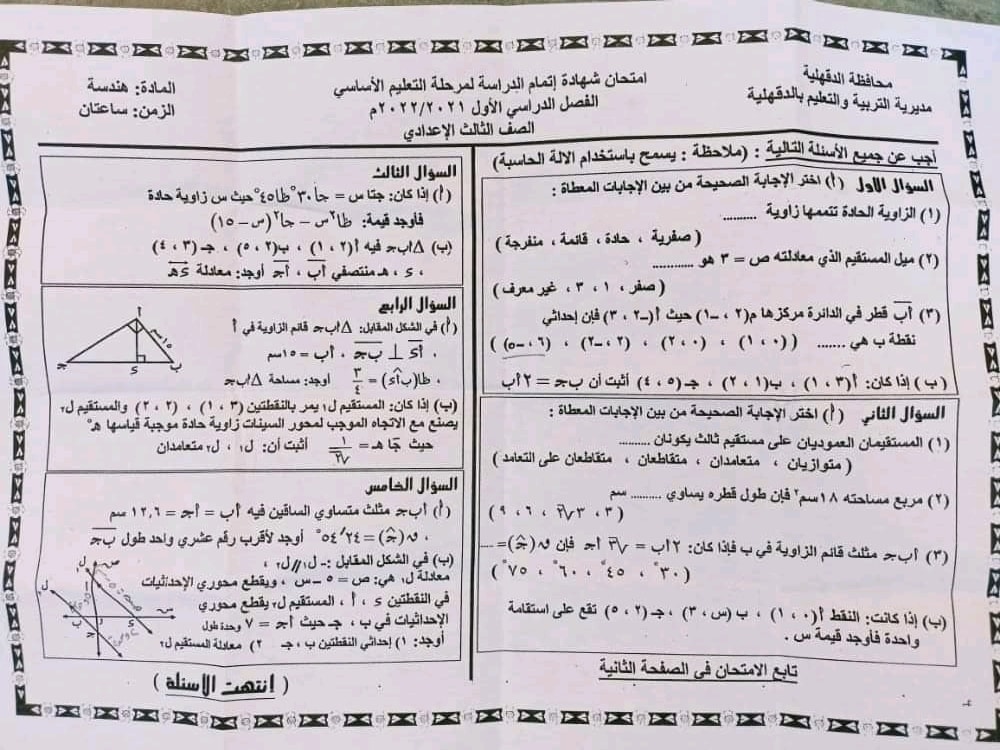 محافظة الدقهلية
مديرية التربية والتعليم بالدقهلية
امتحان شهادة إتمام الدراسة لمرحلة التعليم الأساسي
الفصل الدراسي الأول ٢٠٢٢/٢٠٢١م
الصف الثالث الإعدادي
المادة: هندسة
الزمن: ساعتان
أجب عن جميع الأسئلة التالية : (ملاحظة : يسمح باستخدام الالة الحاسبة)
السؤال الاول (أ) اختر الإجابة الصحيحة من بين الإجابات المعطاة :
(١) الزاوية الحادة تتممها زاوية ..........
( صفرية ، حادة ، قائمة ، منفرجة )
(٢) ميل المستقيم الذي معادلته ص = ٣ هو ............
( صفر ، ١ ، ٣ ، غير معرف )
(٣) أب قطر في الدائرة مركزها م(٢ ، -١) حيث أ(-٢ ، ٣) فإن إحداثي
نقطة ب هي ....... ( (٠ ، ١) ، (٠ ، ٢) ، (٢ ، -٢) ، (٦ ، -٥) )
(ب) إذا كان: أ(٣ ، ١) ، ب(١ ، ٢) ، جـ(٥ ، ٤) أثبت أن ب جـ = ٢ أب
السؤال الثاني (أ) اختر الإجابة الصحيحة من بين الإجابات المعطاة :
(١) المستقيمان العموديان على مستقيم ثالث يكونان ..........
( متوازيان ، متعامدان ، متقاطعان ، متقاطعان على التعامد )
(٢) مربع مساحته ١٨سم٢ فإن طول قطره يساوي .......... سم
( ٣ ، ٣√٢ ، ٦ ، ٩ )
(٣) أب جـ مثلث قائم الزاوية في ب فإذا كان: ٢أب = √٣ أجـ فإن ق(جـ)= ....
( ٣٠° ، ٤٥° ، ٦٠° ، ٧٥° )
(ب) إذا كانت: النقط أ(٠ ، ١) ، ب (س ، ٣) ، جـ(٢ ، ٥) تقع على استقامة
واحدة فأوجد قيمة س .
تابع الامتحان فى الصفحة الثانية
السؤال الثالث
(أ) إذا كان: جتا س = جا٣٠° ظا٤٥° حيث س زاوية حادة
فأوجد قيمة: ظا٢س - جا٢(س - ١٥)
(ب) △أب جـ فيه أ(٢ ، ١) ، ب(٢ ، ٥) ، جـ(٣ ، ٤)
، ء ، هـ منتصفي أب ، أجـ أوجد: معادلة ءهـ
السؤال الرابع
(أ) في الشكل المقابل: △أب جـ قائم الزاوية في أ
، أء ⊥ ب جـ ، أب = ١٥سم
، ظا(ب أء) = ٣/٤ أوجد: مساحة △أب جـ
(ب) إذا كان: المستقيم ل١ يمر بالنقطتين (٣ ، ١) ، (٢ ، ٢) والمستقيم ل٢
يصنع مع الاتجاه الموجب لمحور السينات زاوية حادة موجبة قياسها هـ°
حيث جا هـ = ١/√٢ أثبت أن: ل١ ، ل٢ متعامدان
السؤال الخامس
(أ) أب جـ مثلث متساوي الساقين فيه أب = أجـ = ١٢,٦ سم
، ق(جـ) = ٢٤ ́ ٥٤° أوجد لأقرب رقم عشري واحد طول ب جـ
(ب) في الشكل المقابل :- ل١ // ل٢ ،
معادلة ل١ هي: ص = ٥ - س ، ويقطع محوري الإحداثيات
في النقطتين ء ، أ ، المستقيم ل٢ يقطع محوري
الإحداثيات في ب ، جـ حيث أجـ = ٧ وحدة طول
أوجد: ١) إحداثي النقطتين ب ، جـ ٢) معادلة المستقيم ل٢
( إنتهت الأسئلة )